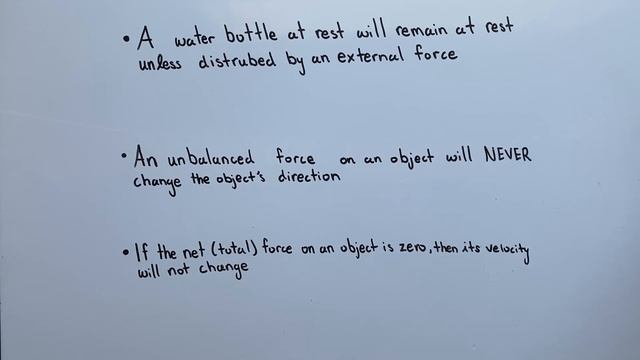 • A water bottle at rest will remain at rest
unless distrubed by an external force
• An unbalanced force on an object will NEVER
change the object's direction
• If the net (total) force on an object is zero, then its velocity
will not change